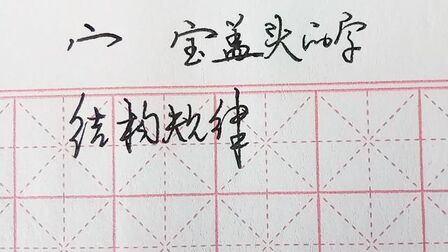 宀 宝盖头的字
结构规律